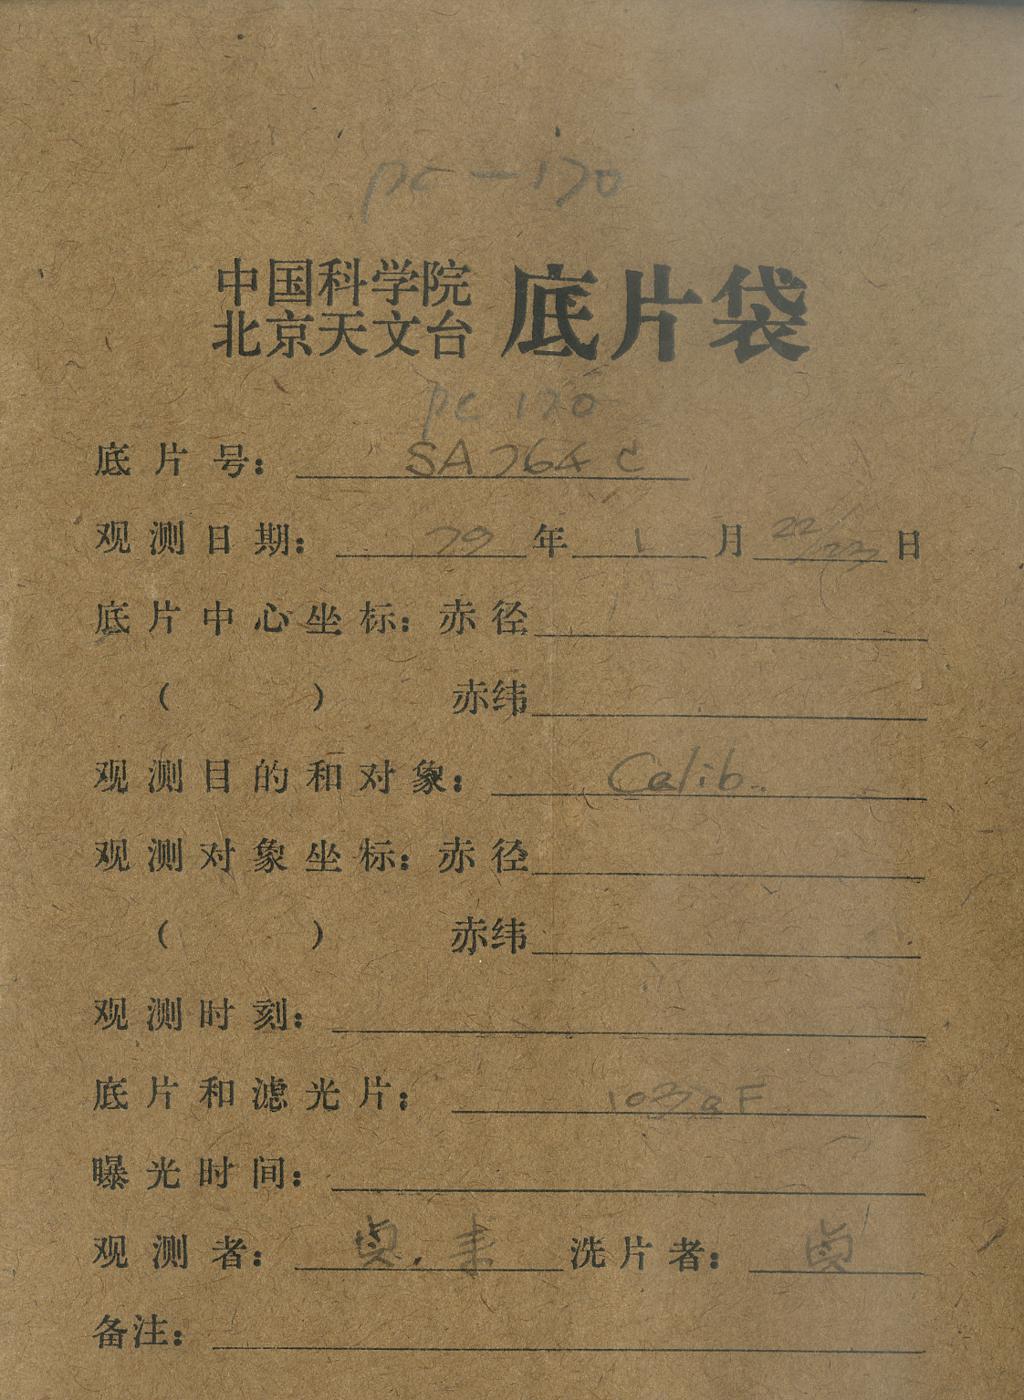 pc-170
中国科学院
北京天文台 底片袋
pc 170
底片号: SA764c
观测日期: 79年1月22/23日
底片中心坐标: 赤径
( ) 赤纬
观测目的和对象: Calib.
观测对象坐标: 赤径
( ) 赤纬
观测时刻:
底片和滤光片: 103aF
曝光时间:
观测者: 洗片者:
备注: